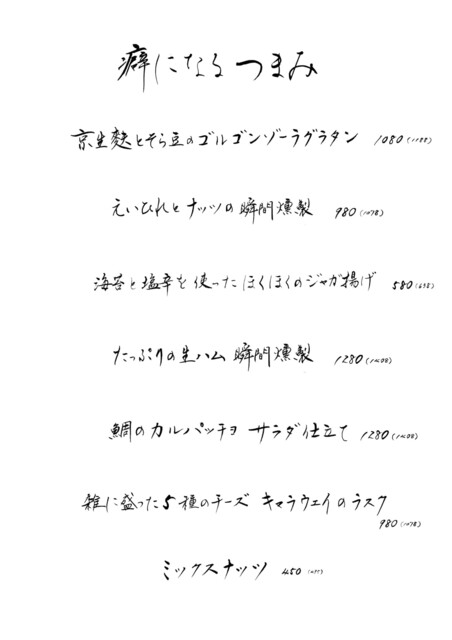 癖になるつまみ
京生麩とそら豆のゴルゴンゾーラグラタン 1080(1188)
えいひれとナッツの瞬間燻製 980(1078)
海苔と塩辛を使ったほくほくのジャガ揚げ 580(638)
たっぷりの生ハム 瞬間燻製 1280(1408)
鯛のカルパッチョ サラダ仕立て 1280(1408)
雑に盛った5種のチーズ キャラウェイのラスク
980(1078)
ミックスナッツ 450(495)